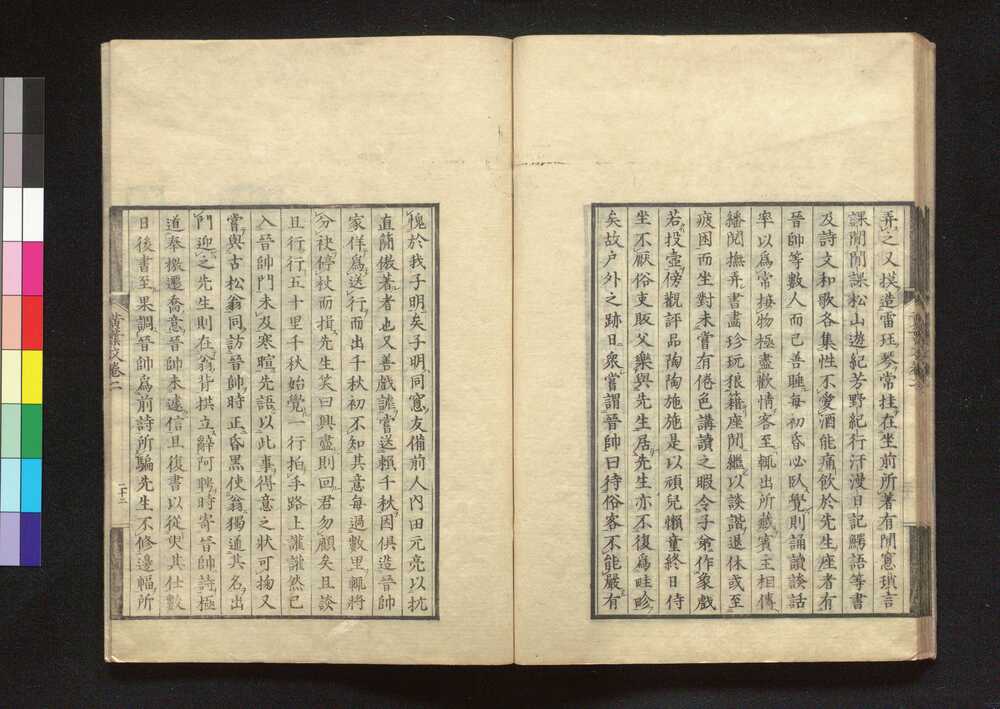 弄之又摸造雷珏琴常挂在坐前所著有閒窓瑣言
課閒閒課松山遊紀芳野紀行汗漫日記鰐語等書
及詩文和歌各集性不愛酒能痛飲於先生座者有
晉帥等數人而已善睡每初昏必臥覺則誦讀談話
率以爲常接物極盡歡情客至輒出所藏賓主相傳
繙閱撫弄書畫珍玩狼籍座閒繼以談諧退休或至
疲困而坐對未嘗有倦色講讀之暇令子弟作象戲
若投壺傍觀評品陶陶施施是以頑兒懶童終日侍
坐不厭俗吏販父樂與先生居先生亦不復爲畦畛
矣故户外之跡日衆嘗謂晉帥曰待俗客不能嚴有
愧於我子明矣子明同窓友備前人內田元亮以抗
直簡傲著者也又善戲謔嘗送賴千秋因俱造晉帥
家佯爲送行而出千秋初不知其意每過數里輒將
分袂停杖而揖先生笑曰興盡則回君勿顧矣且談
且行行五十里千秋始覺一行拍手路上讙讙然已
入晉帥門未及寒暄先語以此事得意之狀可掬又
嘗與古松翁同訪晉帥時正昏黑使翁獨通其名出
門迎之先生則在翁背拱立辭阿聘時寄晉帥詩極
道奉檄遷喬意晉帥未遽信且復書以從臾其仕數
日後書至果調晉帥爲前詩所騙先生不修邊幅所
黄葉文卷二
二十二